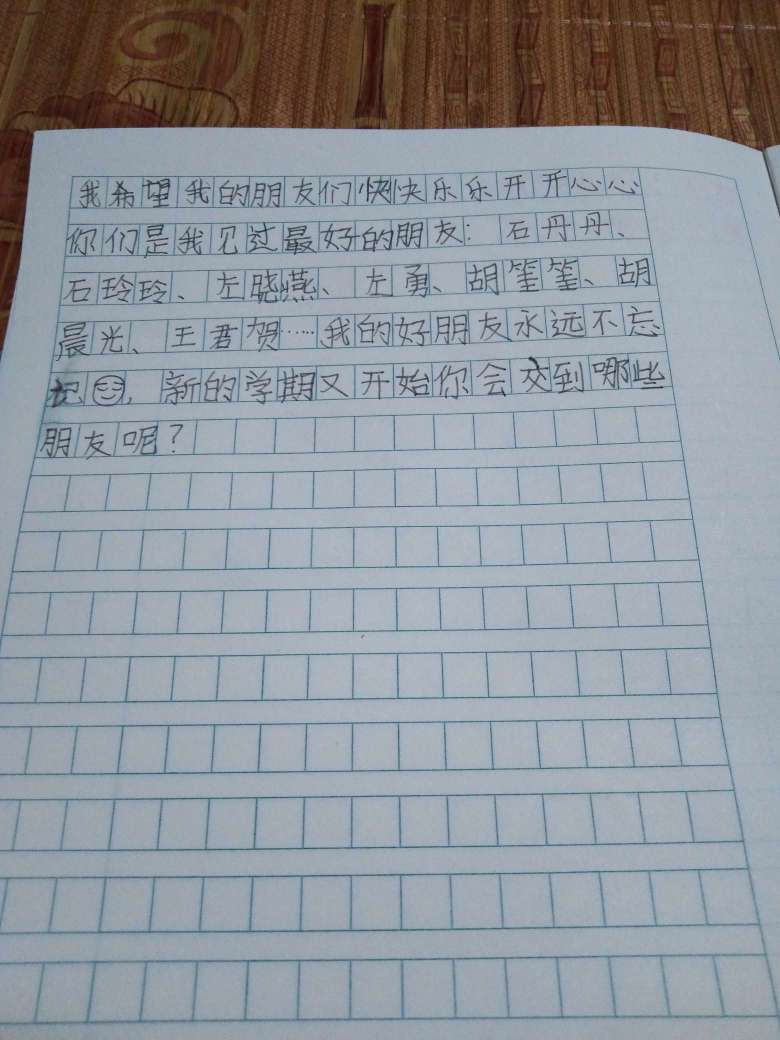 我希望我的朋友们快快乐乐开开心心
你们是我见过最好的朋友：石丹丹、
石玲玲、左晓燕、左勇、胡筀筀、胡
晨光、王君贺……我的好朋友永远不忘
记😊，新的学期又开始你会交到哪些
朋友呢？